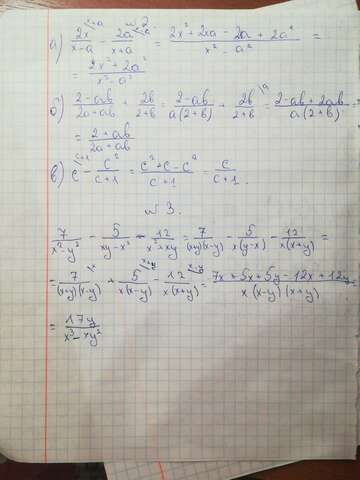 № 2
а) 2x/x-a - 2a/x+a = 2x² + 2xa - 2a + 2a²/x² - a² =
= 2x² + 2a²/x² - a²
б) 2-ab/2a+ab + 2b/2+b = 2-ab/a(2+b) + 2b/2+b = 2-ab+2ab/a(2+b) =
= 2+ab/2a+ab
в) c - c²/c+1 = c²+c-c²/c+1 = c/c+1.
№ 3.
7/x²-y² - 5/xy-x² - 12/x²+xy = 7/(x+y)(x-y) - 5/x(y-x) - 12/x(x+y) =
= 7/(x+y)(x-y) + 5/x(x-y) - 12/x(x+y) = 7x+5x+5y-12x+12y/x(x-y)(x+y) =
= 17y/x³-xy²